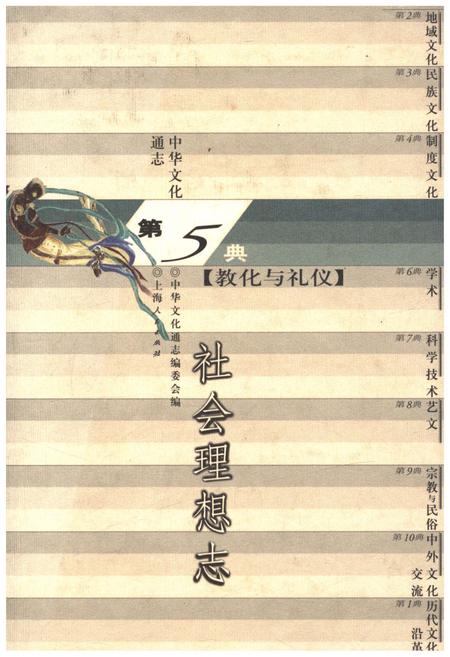 第2典 地域文化
第3典 民族文化
第4典 制度文化
中华文化
通志
第5典
【教化与礼仪】
◎中华文化通志编委会编
◎上海人民出版社
社会理想志
第6典 学术
第7典 科学技术
第8典 艺文
第9典 宗教与民俗
第10典 中外文化
交流
第1典 历代文化
沿革